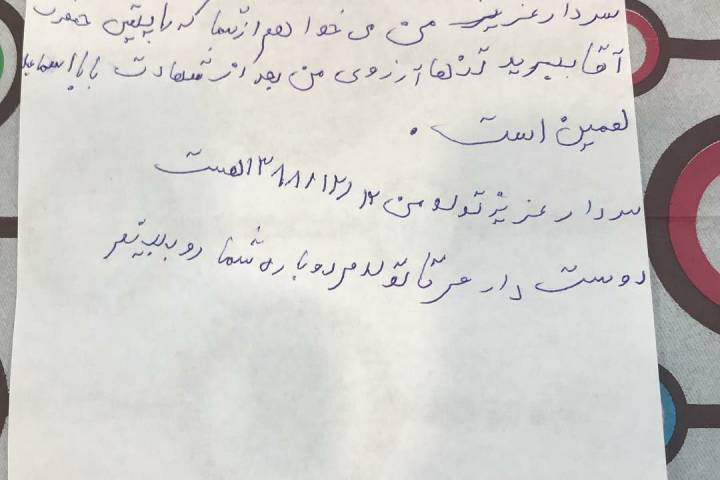 سردار عزیز من می خواهم از شما که با پیش حضرت
آقا ببرید تنها آرزوی من بعد از شهادت بابا اسماعیل
همین است .
سردار عزیز تولد من ۱۳۸۸/۱۲/۱۲ هست
دوست دارم تا تولدم دوباره شما رو ببینم